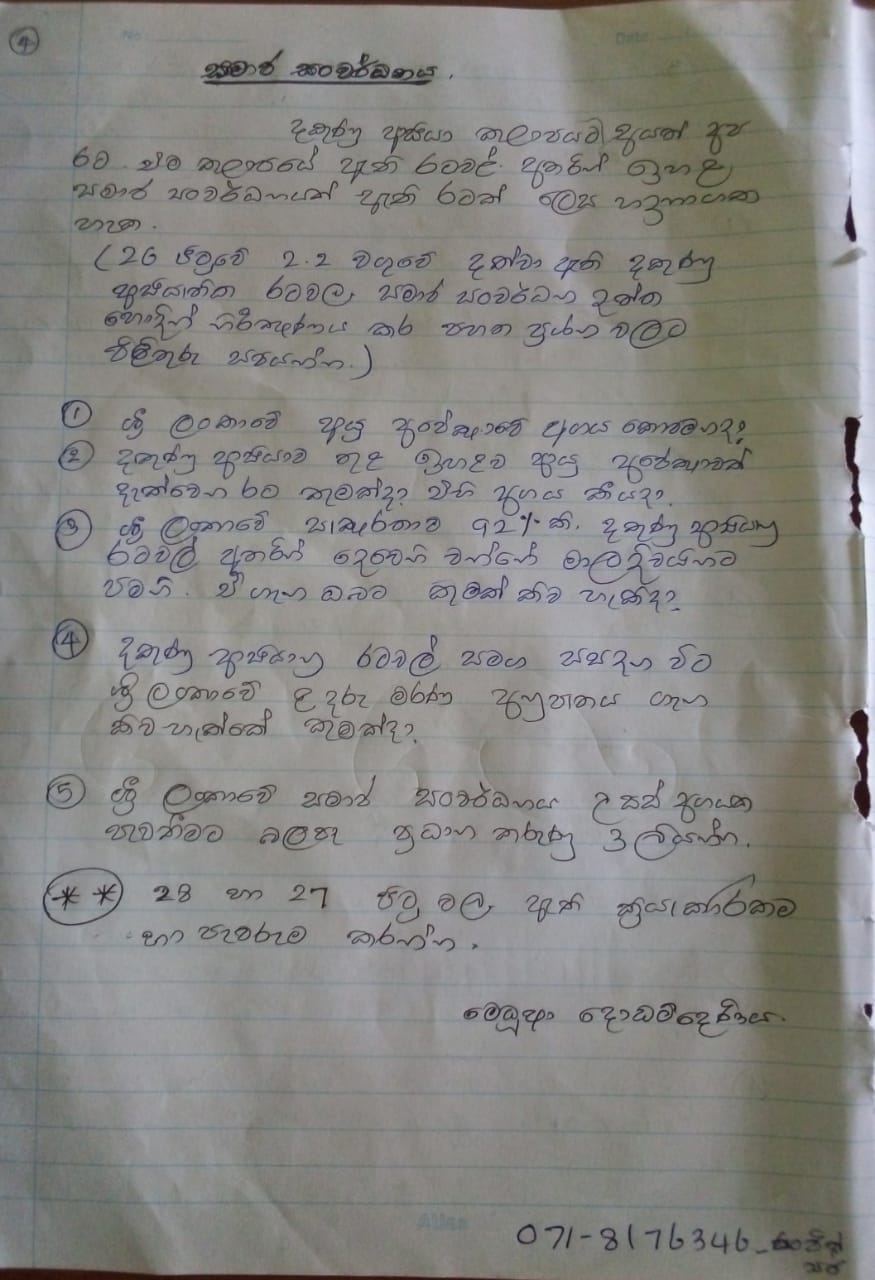 4
සමාජ සංවර්ධනය.
දකුණු ආසියා කලාපයට අයත් අප
රට එම කලාපයේ ඇති රටවල් අතරින් ඉහළ
සමාජ සංවර්ධනයක් ඇති රටක් ලෙස හඳුනාගත
හැක.
(26 පිටුවේ 2.2 වගුවේ දක්වා ඇති දකුණු
ආසියාතික රටවල, සමාජ සංවර්ධන දත්ත
හොඳින් නිරීක්ෂණය කර පහත ප්‍රශ්න වලට
පිළිතුරු සපයන්න.)
① ශ්‍රී ලංකාවේ ආයු අපේක්ෂාවේ අගය කොමගද?
② දකුණු ආසියාව තුළ ඉහළම ආයු අපේක්ෂාවක්
දැක්වෙන රට කුමක්ද? එහි අගය කීයද?
③ ශ්‍රී ලංකාවේ සාක්ෂරතාව 92%කි. දකුණු ආසියානු
රටවල් අතරින් දෙවෙනි වන්නේ මාලදිවයිනට
පමනි. ඒ ගැන ඔබට කුමක් කිව හැකිද?
④ දකුණු ආසියානු රටවල් සමග සසඳන විට
ශ්‍රී ලංකාවේ ළදරු මරණ අනුපාතය ගැන
කිව හැක්කේ කුමක්ද?
⑤ ශ්‍රී ලංකාවේ සමාජ සංවර්ධනය උසස් අගයක
පැවතීමට බලපෑ ප්‍රධාන කරුණු 3 ලියන්න.
** 28 හා 27 පිටු වල, ඇති ක්‍රියාකාරකම
හා පැවරුම කරන්න.
දොඩම්දෙණිය.
Atlas
071-8176346